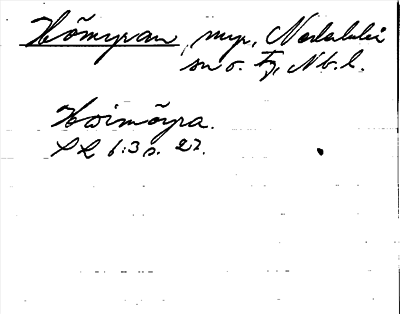 Hömyran, myr, Nederluleå
sn o. tg, Nb. l.
Höimöyra.
SL 6:3 s. 27.